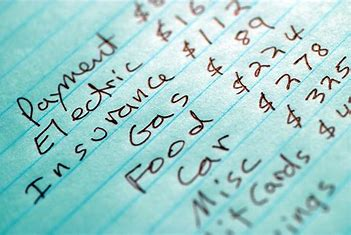 Payment $
Electric $16
Insurance $112
Gas $89
Food $224
Car $278
Misc $325
Cards $